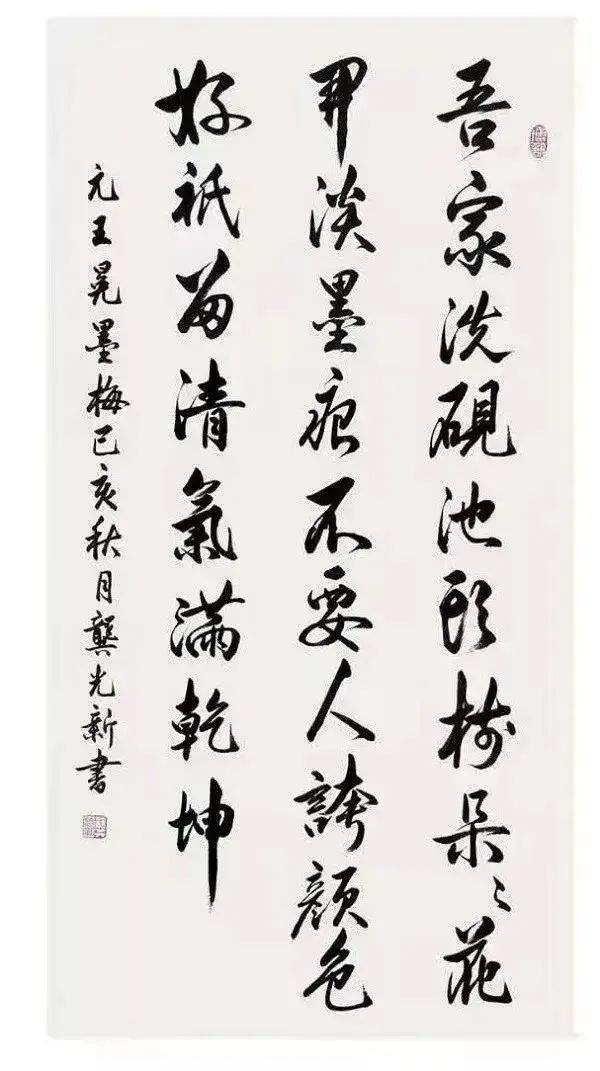 吾家洗硯池頭樹朵〻花
開淡墨痕不要人誇顏色
好祇留清氣滿乾坤
元王冕墨梅己亥秋月龔光新書